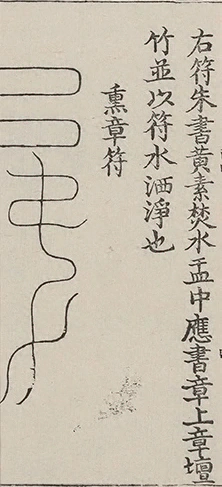 右符朱書黃素焚水盂中應書章上章壇
竹並以符水洒淨也
熏章符